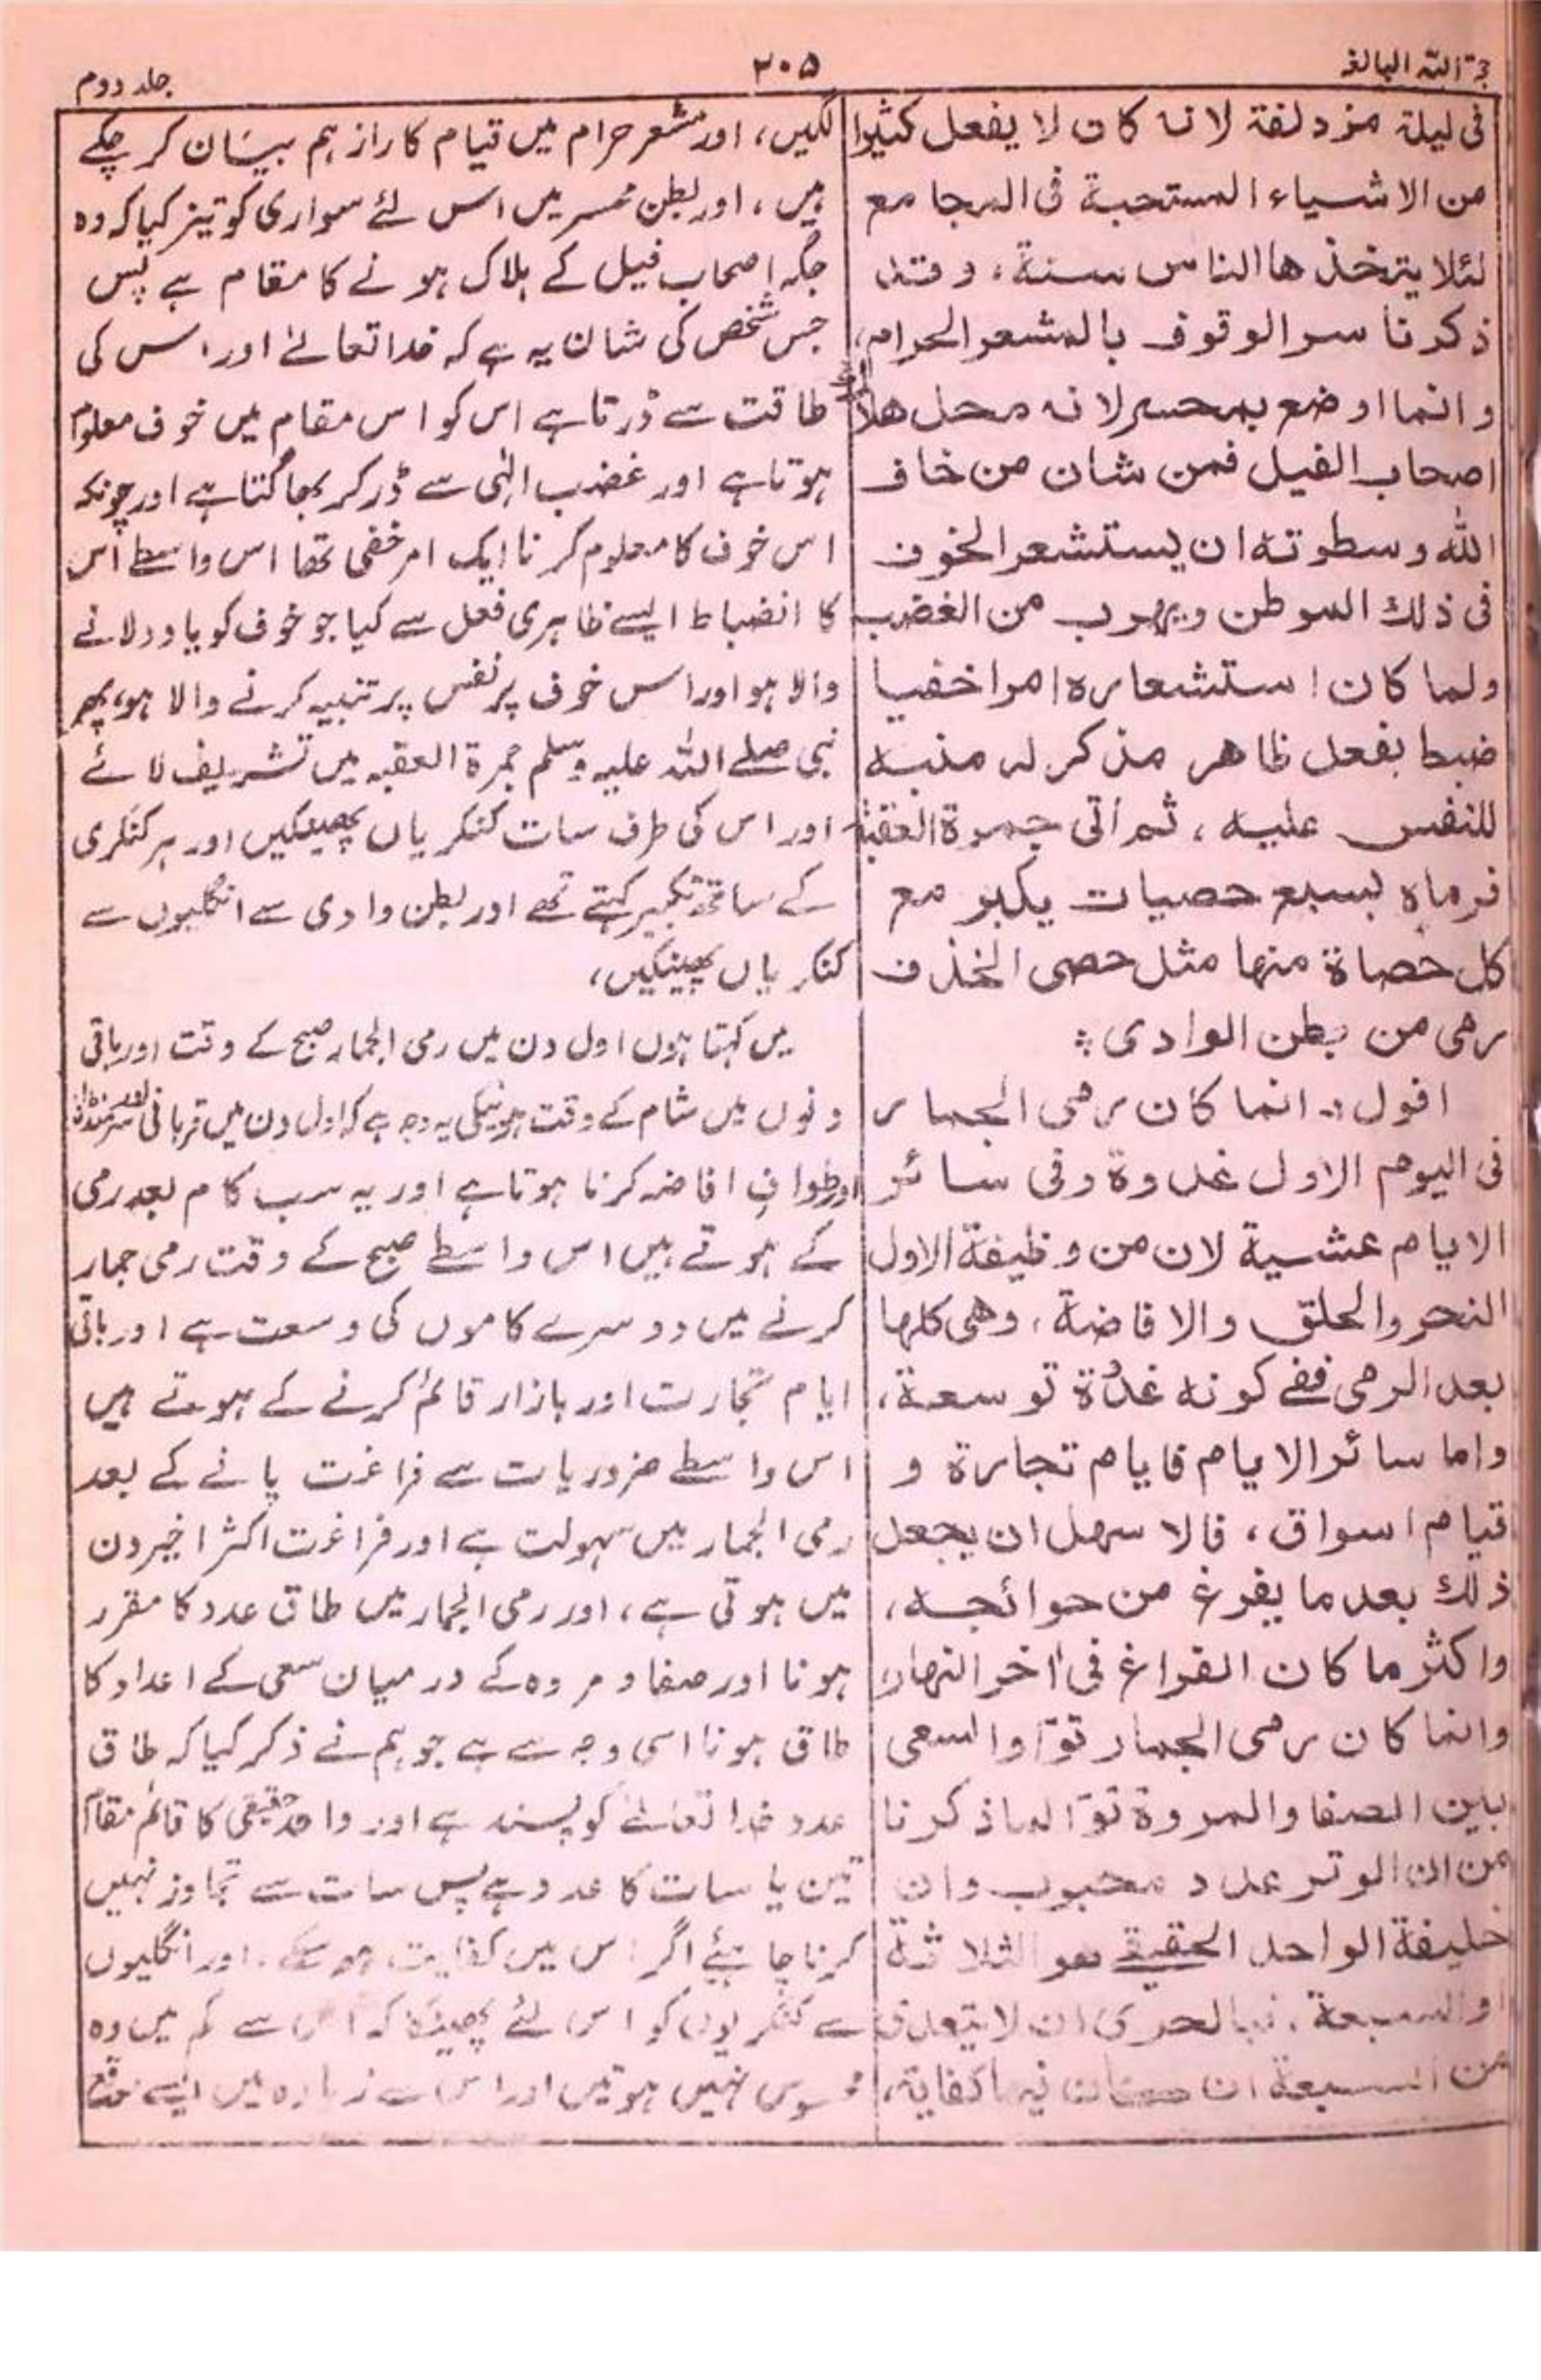 حجۃ اللہ البالغہ
۳۰۵
جلد دوم
فی لیلة مزدلفة لانه کان لا یفعل کثیرا
من الاشیاء المستحبة فی المجامع
لئلا یتخذها الناس سنة، وقد
ذکرنا سر الوقوف بالمشعر الحرام،
وانما اوضع بمحسر لانه محل هلاک
اصحاب الفیل فمن شان من خاف
الله وسطوته ان یستشعر الخوف
فی ذلك الموطن ویهرب من الغضب
ولما کان استشعاره امرا خفیا
ضبط بفعل ظاهر مذکر له منبه
للنفس علیه، ثم اتی جمرة العقبة
فرماه بسبع حصیات یکبر مع
کل حصاة منها مثل حصی الخذف
رمی من بطن الوادی ؞
اقول :۔ انما کان رمی الجمار
فی الیوم الاول غدوة وفی سائر
الایام عشیة لان من وظیفة الاول
النحر والحلق والافاضة، وهی کلها
بعد الرمی ففی کونه غدُوة توسعة،
واما سائر الایام فایام تجارة و
قیام اسواق، فالاسهل ان یجعل
ذلك بعد ما یفرغ من حوائجه،
واکثر ما کان الفراغ فی اٰخر النهار،
وانما کان رمی الجمار توّا والسعی
بین الصفا والمروة توّا لما ذکرنا
من ان الوتر عدد محبوب وان
خلیفة الواحد الحقیقے هو الثلاثة
او السبعة، فبالحری ان لا یتعدی
من السبعة ان کان فیها کفایة،
لگیں، اور مشعر حرام میں قیام کا راز ہم بیان کر چکے
ہیں، اور بطن محسر میں اس لئے سواری کو تیز کیا کہ وہ
جگہ اصحاب فیل کے ہلاک ہونے کا مقام ہے پس
جس شخص کی شان یہ ہے کہ خدا تعالیٰ اور اس کی
طاقت سے ڈرتا ہے اس کو اس مقام میں خوف معلوم
ہوتا ہے اور غضب الٰہی سے ڈر کر بھاگتا ہے اور چونکہ
اس خوف کا معلوم کرنا ایک امر خفی تھا اس واسطے اس
کا انضباط ایسے ظاہری فعل سے کیا جو خوف کو یاد دلانے
والا ہو اور اس خوف پر نفس پر تنبیہ کرنے والا ہو، پھر
نبی صلے اللہ علیہ وسلم جمرۃ العقبہ میں تشریف لائے
اور اس کی طرف سات کنکریاں پھینکیں اور ہر کنکری
کے ساتھ تکبیر کہتے تھے اور بطن وادی سے انگلیوں سے
کنکریاں پھینکیں،
میں کہتا ہوں اول دن میں رمی الجمار صبح کے وقت اور باقی
دنوں میں شام کے وقت ہونیکی یہ وجہ ہے کہ اول دن میں قربانی اور سر منڈانا
اور طواف افاضہ کرنا ہوتا ہے اور یہ سب کام بعد رمی
کے ہوتے ہیں اس واسطے صبح کے وقت رمی جمار
کرنے میں دوسرے کاموں کی وسعت ہے اور باقی
ایام تجارت اور بازار قائم کرنے کے ہوتے ہیں
اس واسطے ضروریات سے فراغت پانے کے بعد
رمی الجمار میں سہولت ہے اور فراغت اکثر اخیر دن
میں ہوتی ہے، اور رمی الجمار میں طاق عدد کا مقرر
ہونا اور صفا و مروہ کے درمیان سعی کے اعداد کا
طاق ہونا اسی وجہ سے ہے جو ہم نے ذکر کیا کہ طاق
عدد خدا تعالیٰ کو پسند ہے اور واحد حقیقی کا قائم مقام
تین یا سات کا عدد ہے پس سات سے تجاوز نہیں
کرنا چاہئے اگر اس میں کفایت ہو سکے، اور انگلیوں
سے کنکریوں کو اس لئے پھینکا کہ اس سے کم میں وہ
محسوس نہیں ہوتیں اور اس سے زیادہ میں ایسے موقع